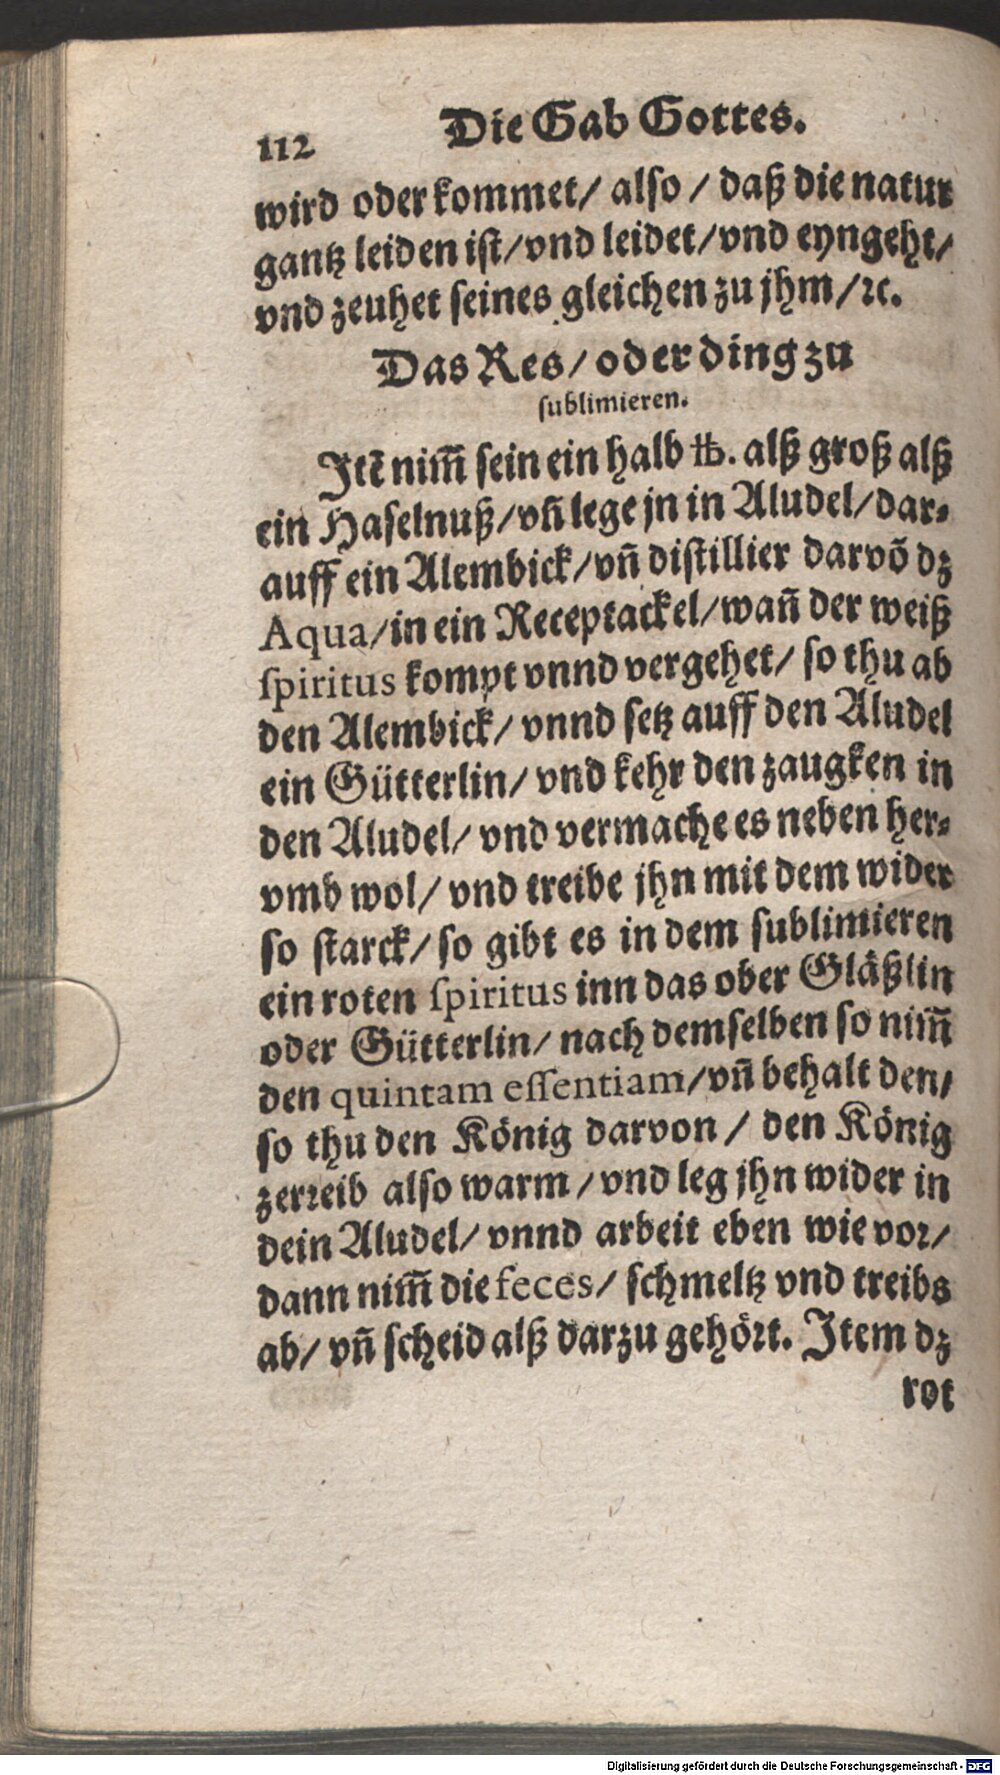 112 Die Gab Gottes.
wird oder kommet/ also / daß die natur
gantz leiden ist/vnd leidet/vnd eyngeht/
vnd zeuhet seines gleichen zu jhm/ꝛc.
Das Res/ oder ding zu
sublimieren.
Itē nim̃ sein ein halb ℔. alß groß alß
ein Haselnuß/vñ lege jn in Aludel/dar-
auff ein Alembick/vñ distillier darvõ dz
Aqua/in ein Receptackel/wañ der weiß
spiritus kompt vnnd vergehet/ so thu ab
den Alembick/ vnnd setz auff den Aludel
ein Gütterlin/ vnd kehr den zaugken in
den Aludel/ vnd vermache es neben her-
vmb wol/ vnd treibe jhn mit dem wider
so starck/ so gibt es in dem sublimieren
ein roten spiritus inn das ober Gläßlin
oder Gütterlin/ nach demselben so nim̃
den quintam essentiam/vñ behalt den/
so thu den König darvon / den König
zerreib also warm / vnd leg jhn wider in
dein Aludel/ vnnd arbeit eben wie vor/
dann nim̃ die feces/ schmeltz vnd treibs
ab/ vñ scheid alß darzu gehört. Item dz
rot
Digitalisierung gefördert durch die Deutsche Forschungsgemeinschaft - DFG